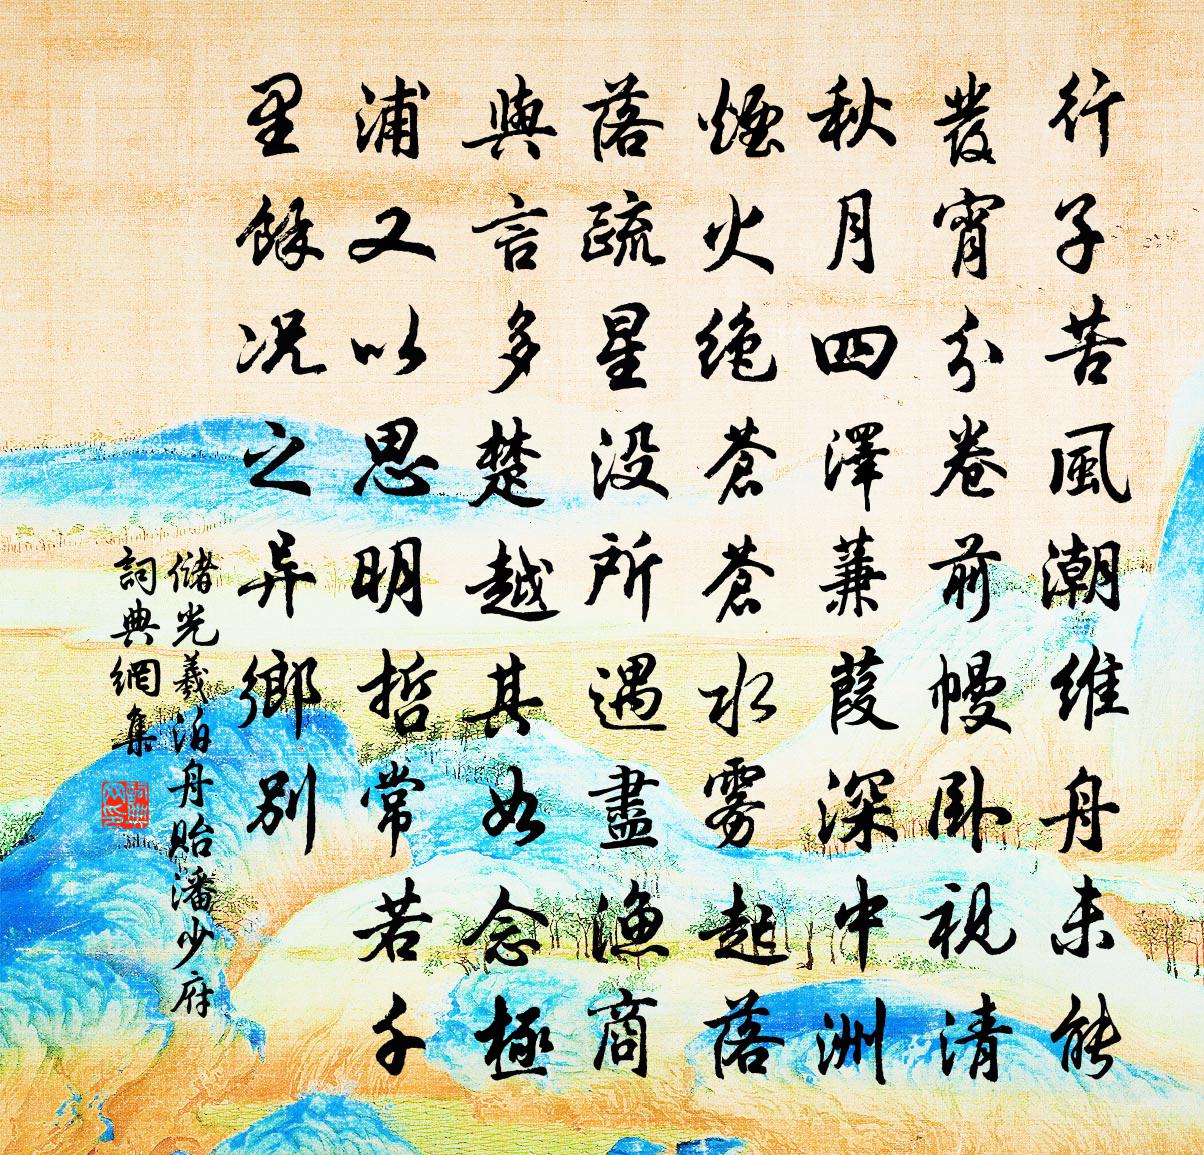 行子苦風潮維舟未能
發宵分卷前幔臥視清
秋月四澤蒹葭深中洲
煙火絶蒼蒼水雾起落
落疏星没所遇盡漁商
與言多楚越其如念極
浦又以思明哲常若千
里餘况之异鄉別
儲光羲泊舟貽潘少府
詞典網集